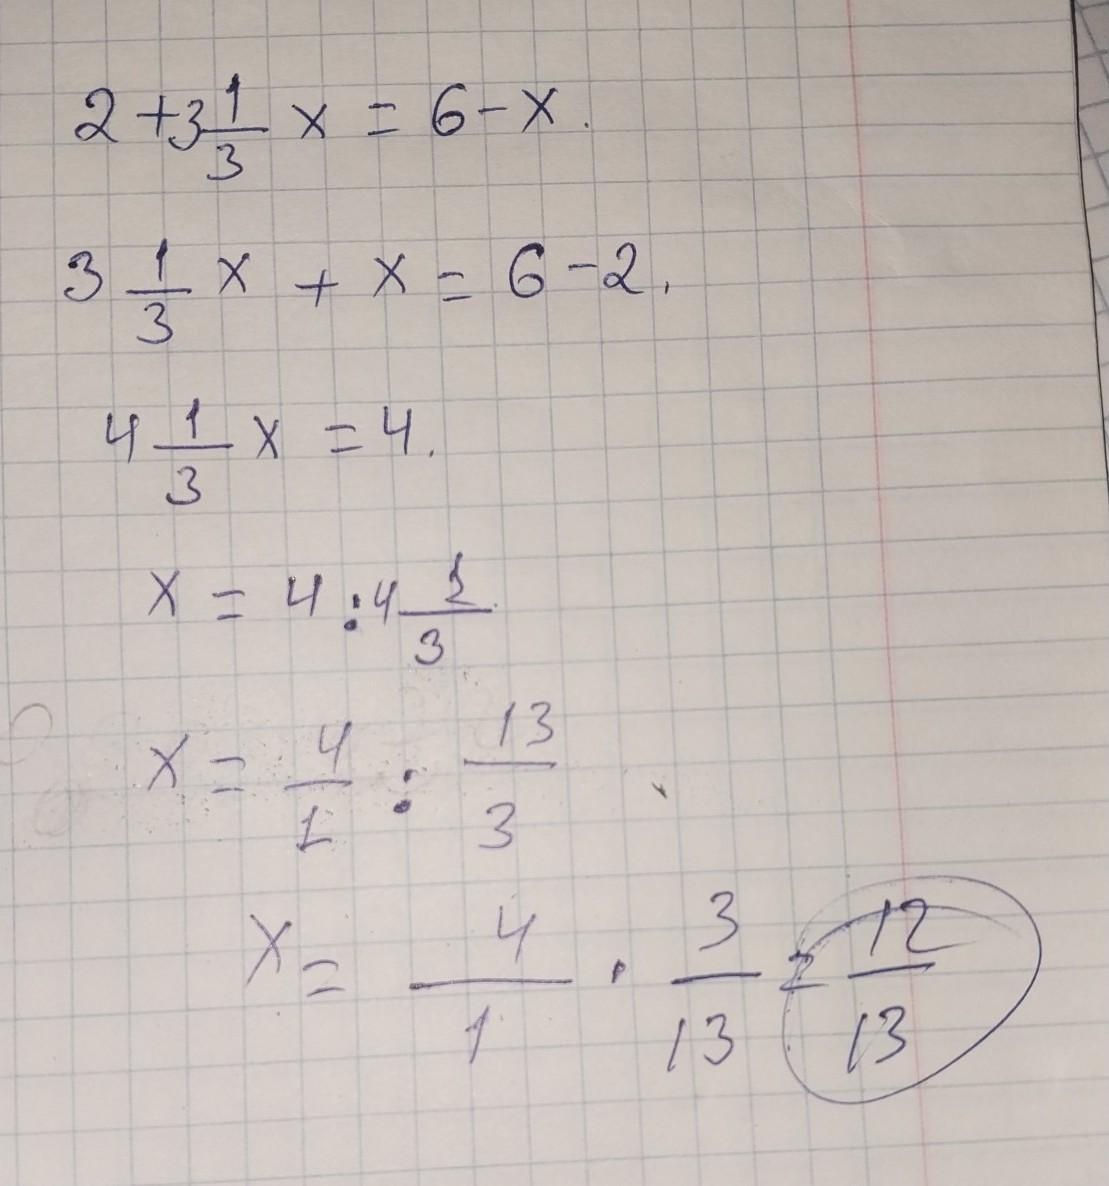 2 + 3 1/3 x = 6 - x.
3 1/3 x + x = 6 - 2.
4 1/3 x = 4.
x = 4 : 4 1/3
x = 4/1 : 13/3
x = 4/1 · 3/13 = 12/13